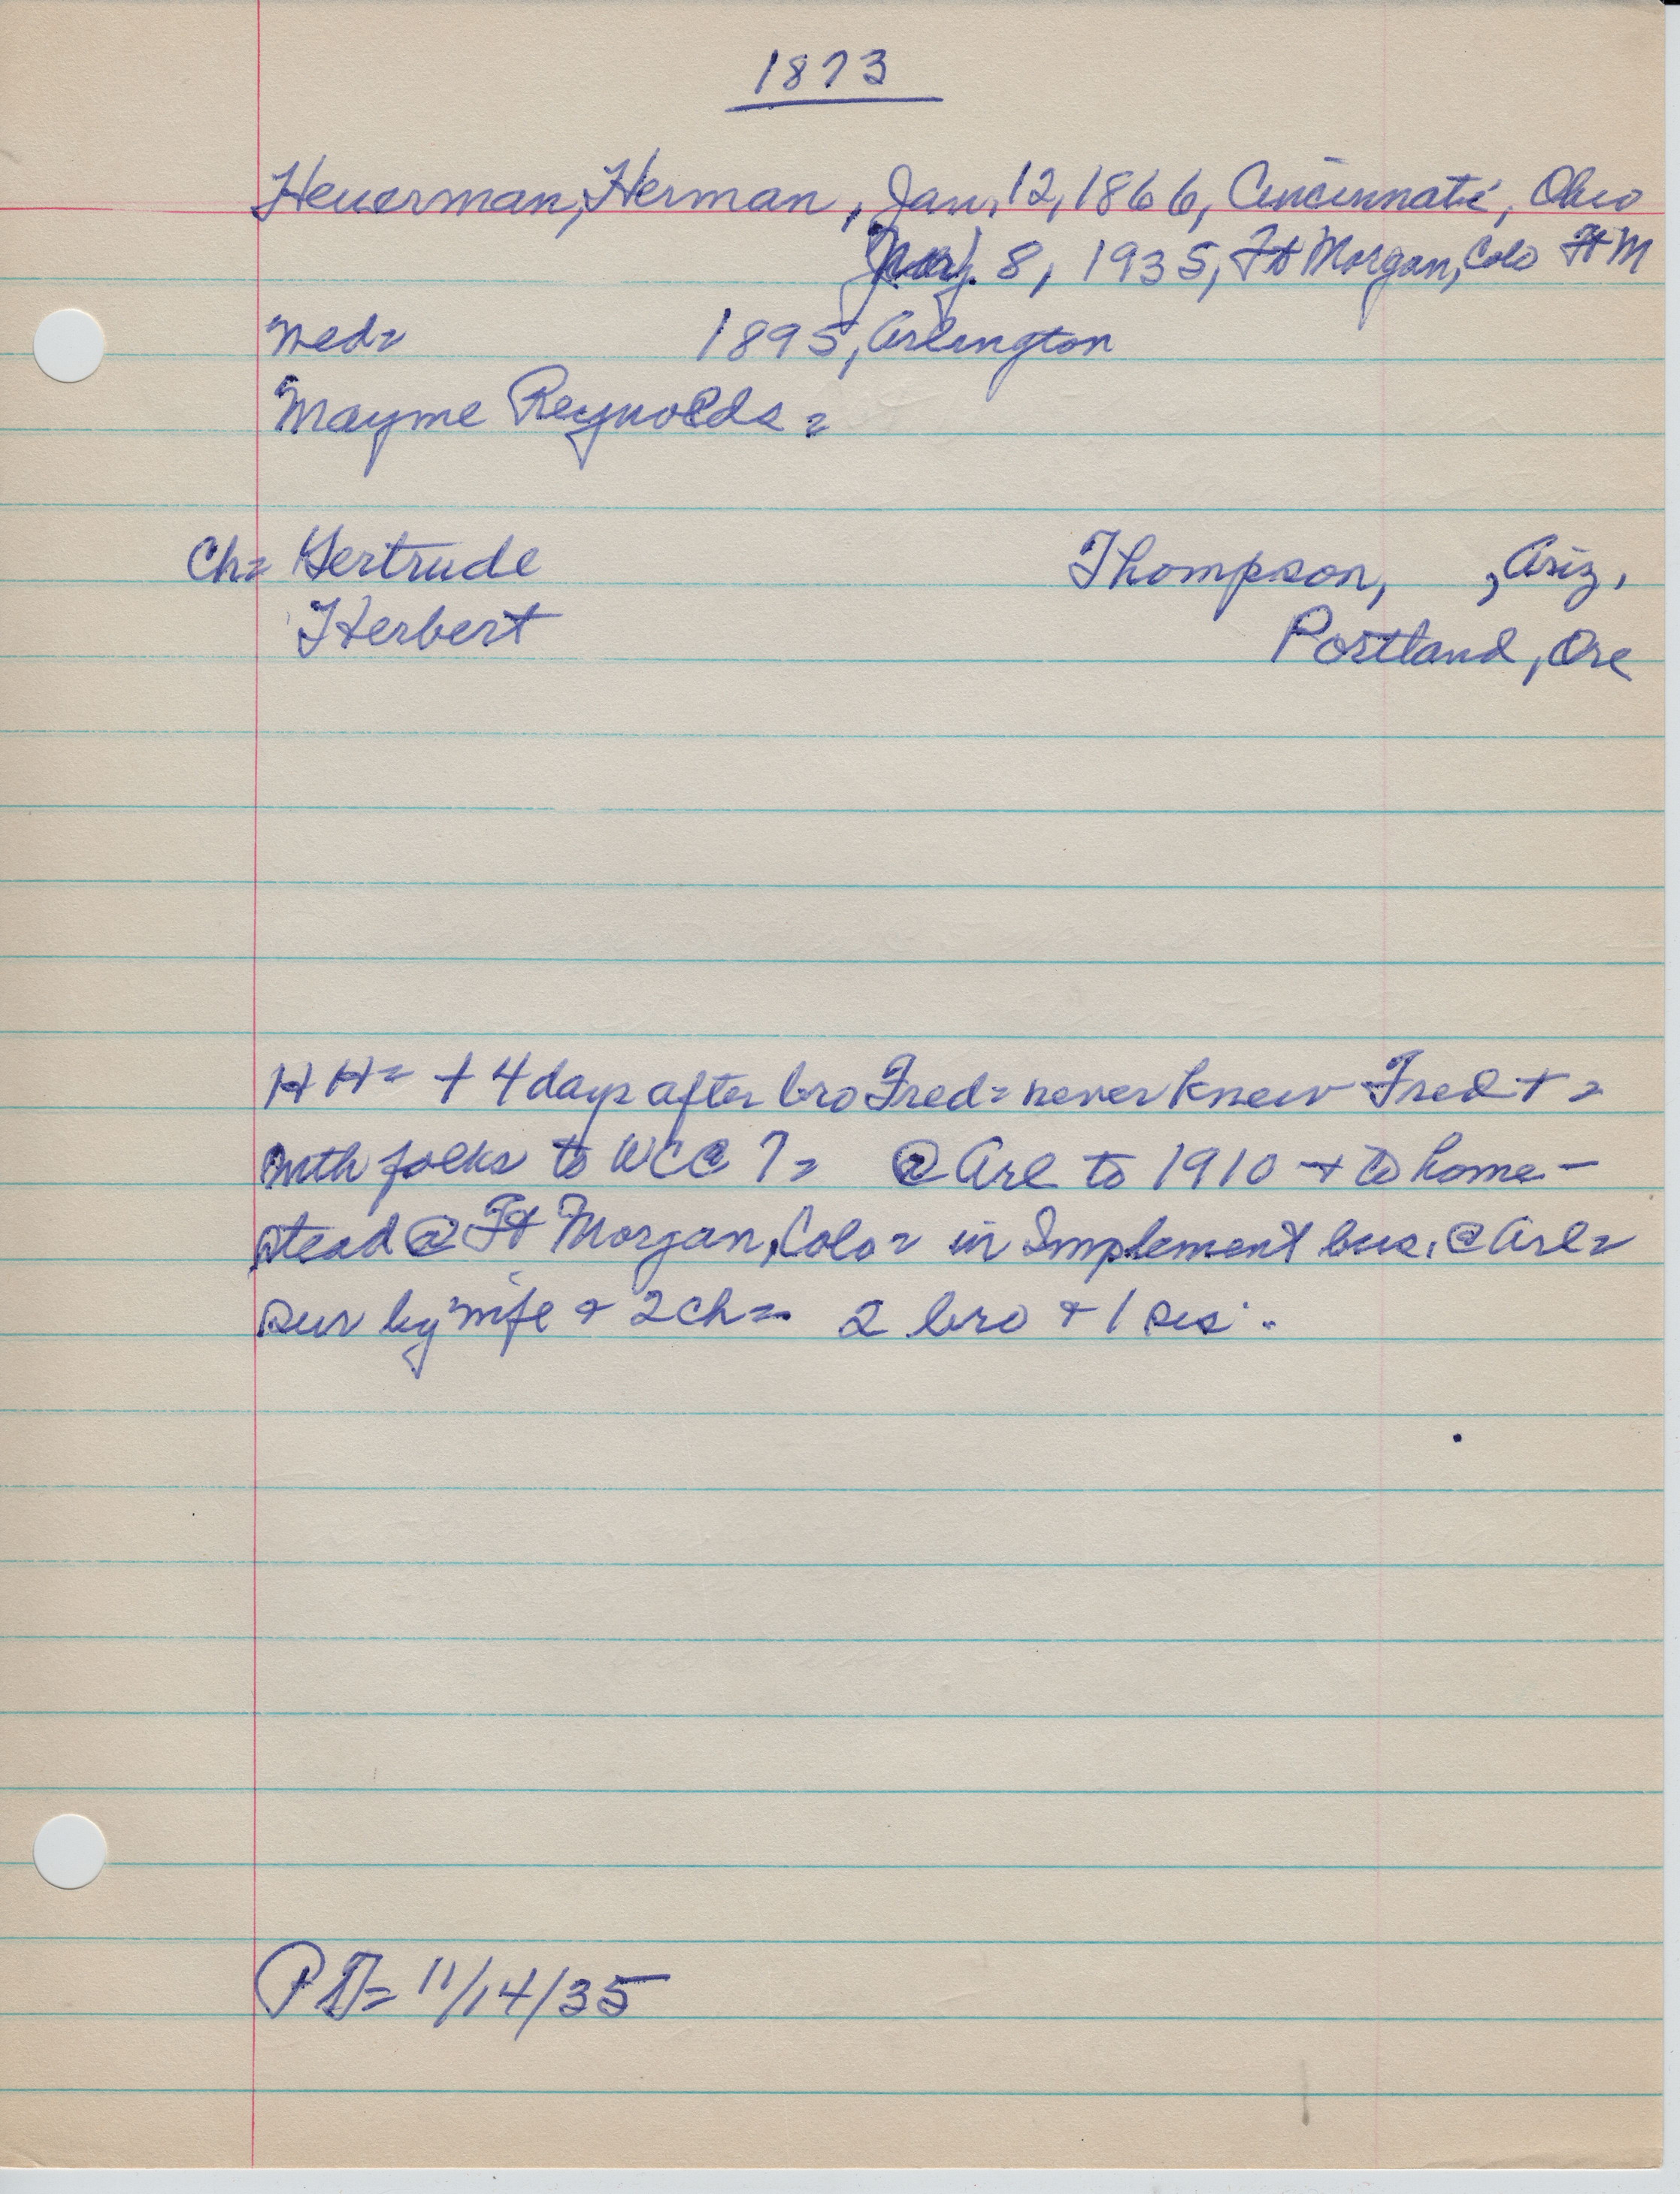 1873
Heuerman, Herman, Jan. 12, 1866, Cincinnati, Ohio
8, 1935, Ft Morgan, Colo Ft M
Med= 1895, Arlington
Mayme Reynolds=
Ch= Gertrude Thompson, , Ariz,
Herbert Portland, Ore
HH= + 4 days after bro Fred= never knew Fred +=
with folks to WCC ?= @ Arl to 1910 + to home-
stead @ Ft Morgan, Colo= in Implement bus. @ Arl=
sur by wife + 2 ch= 2 bro + 1 sis.
PD= 11/14/35